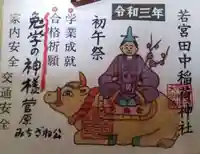 若宮田中稲荷神社
令和三年
初午祭
学業成就
合格祈願
勉学の神様菅原
みちざね公
家内安全
交通安全